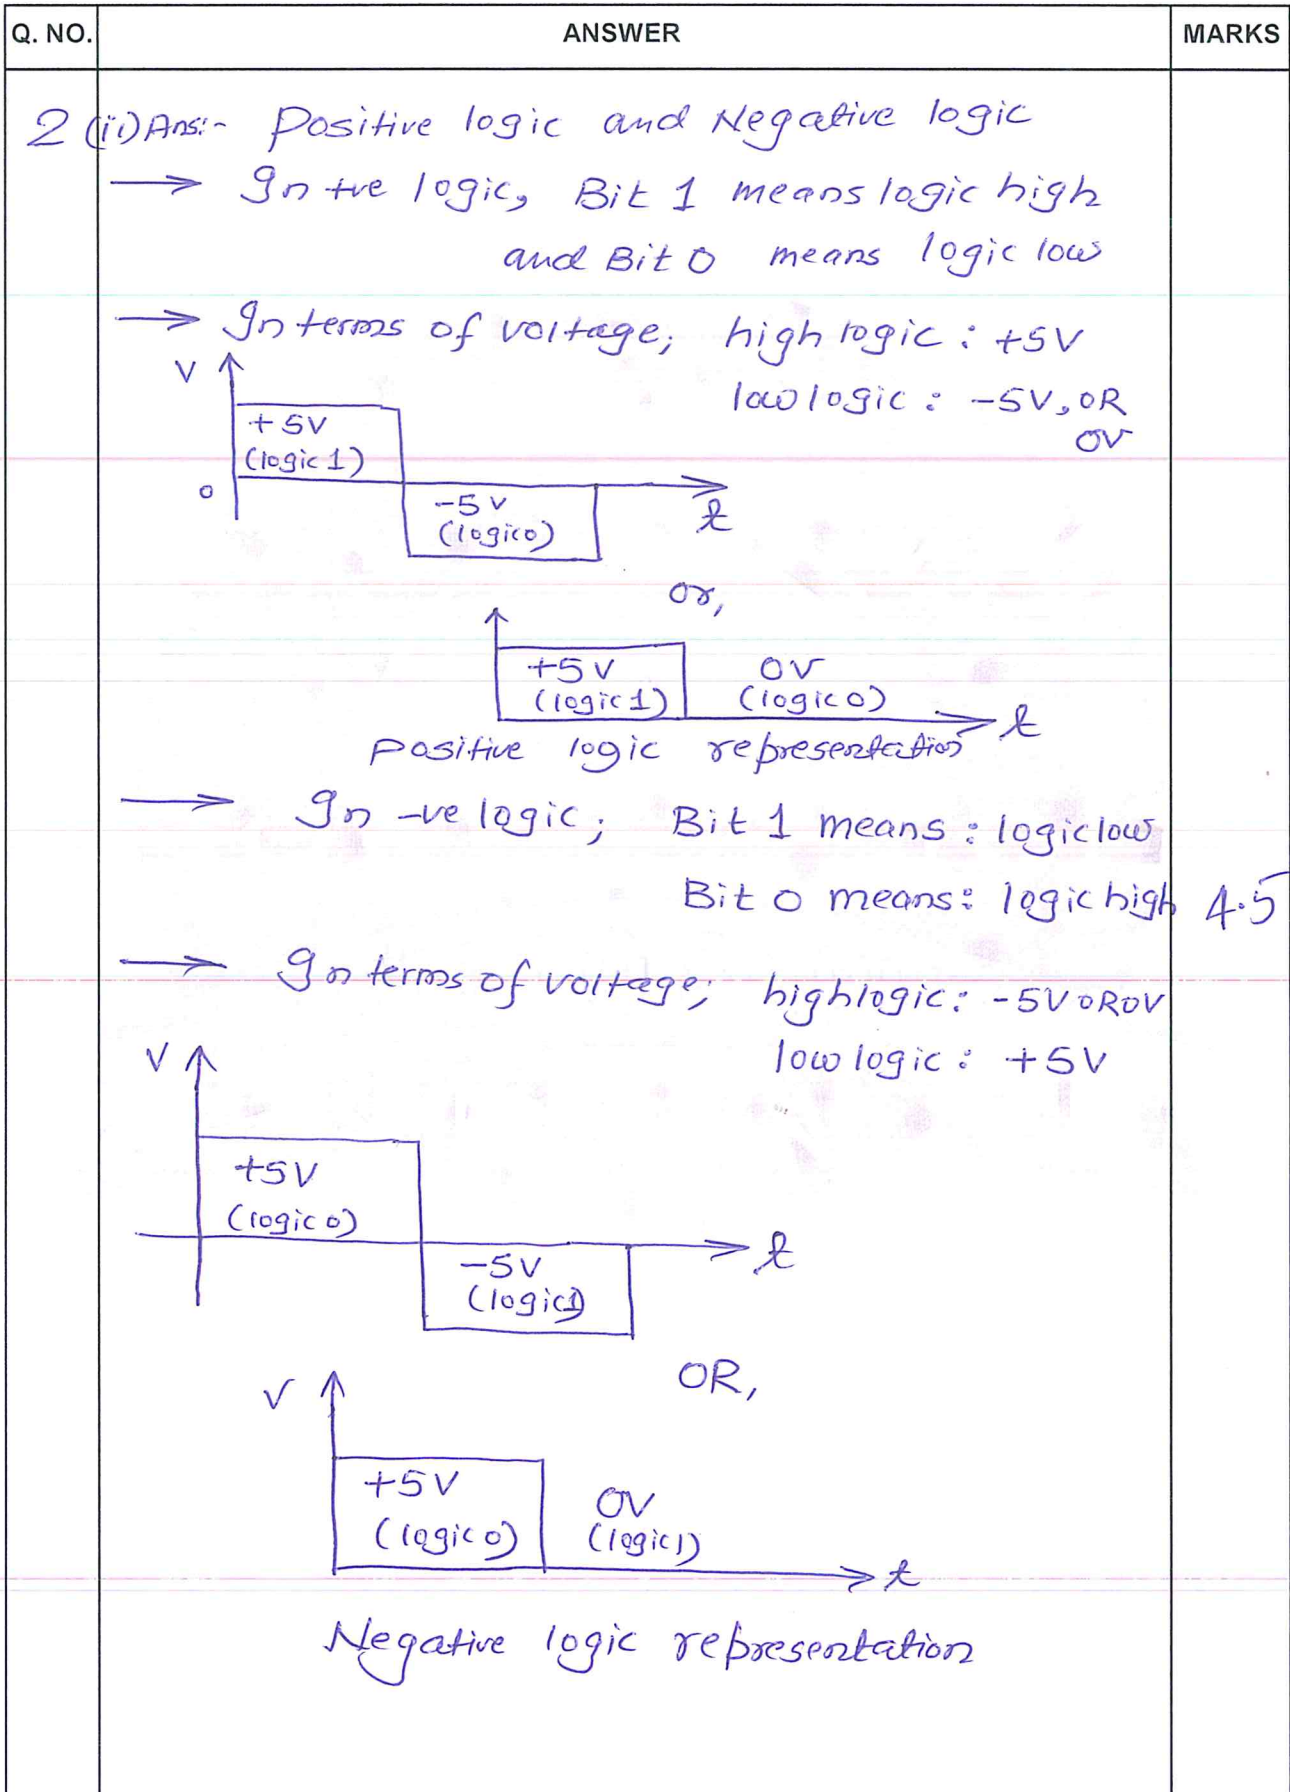 Q. NO. ANSWER MARKS
2 (ii) Ans:- Positive logic and Negative logic
→ In +ve logic, Bit 1 means logic high
and Bit 0 means logic low
→ In terms of voltage; high logic : +5V
low logic : -5V, OR
0V
V
+5V
(logic 1)
0
-5V
(logic 0)
t
or,
+5V
(logic 1)
0V
(logic 0)
t
Positive logic representation
→ In -ve logic; Bit 1 means : logic low
Bit 0 means : logic high 4.5
→ In terms of voltage; high logic : -5V OR 0V
low logic : +5V
V
+5V
(logic 0)
-5V
(logic 1)
t
OR,
V
+5V
(logic 0)
0V
(logic 1)
t
Negative logic representation